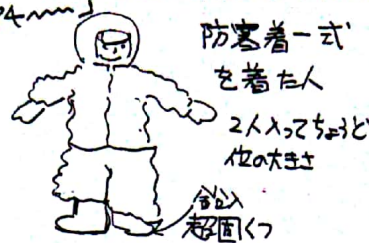 防寒着一式
を着た人
2人入ってちょうど
位の大きさ
超固くつ